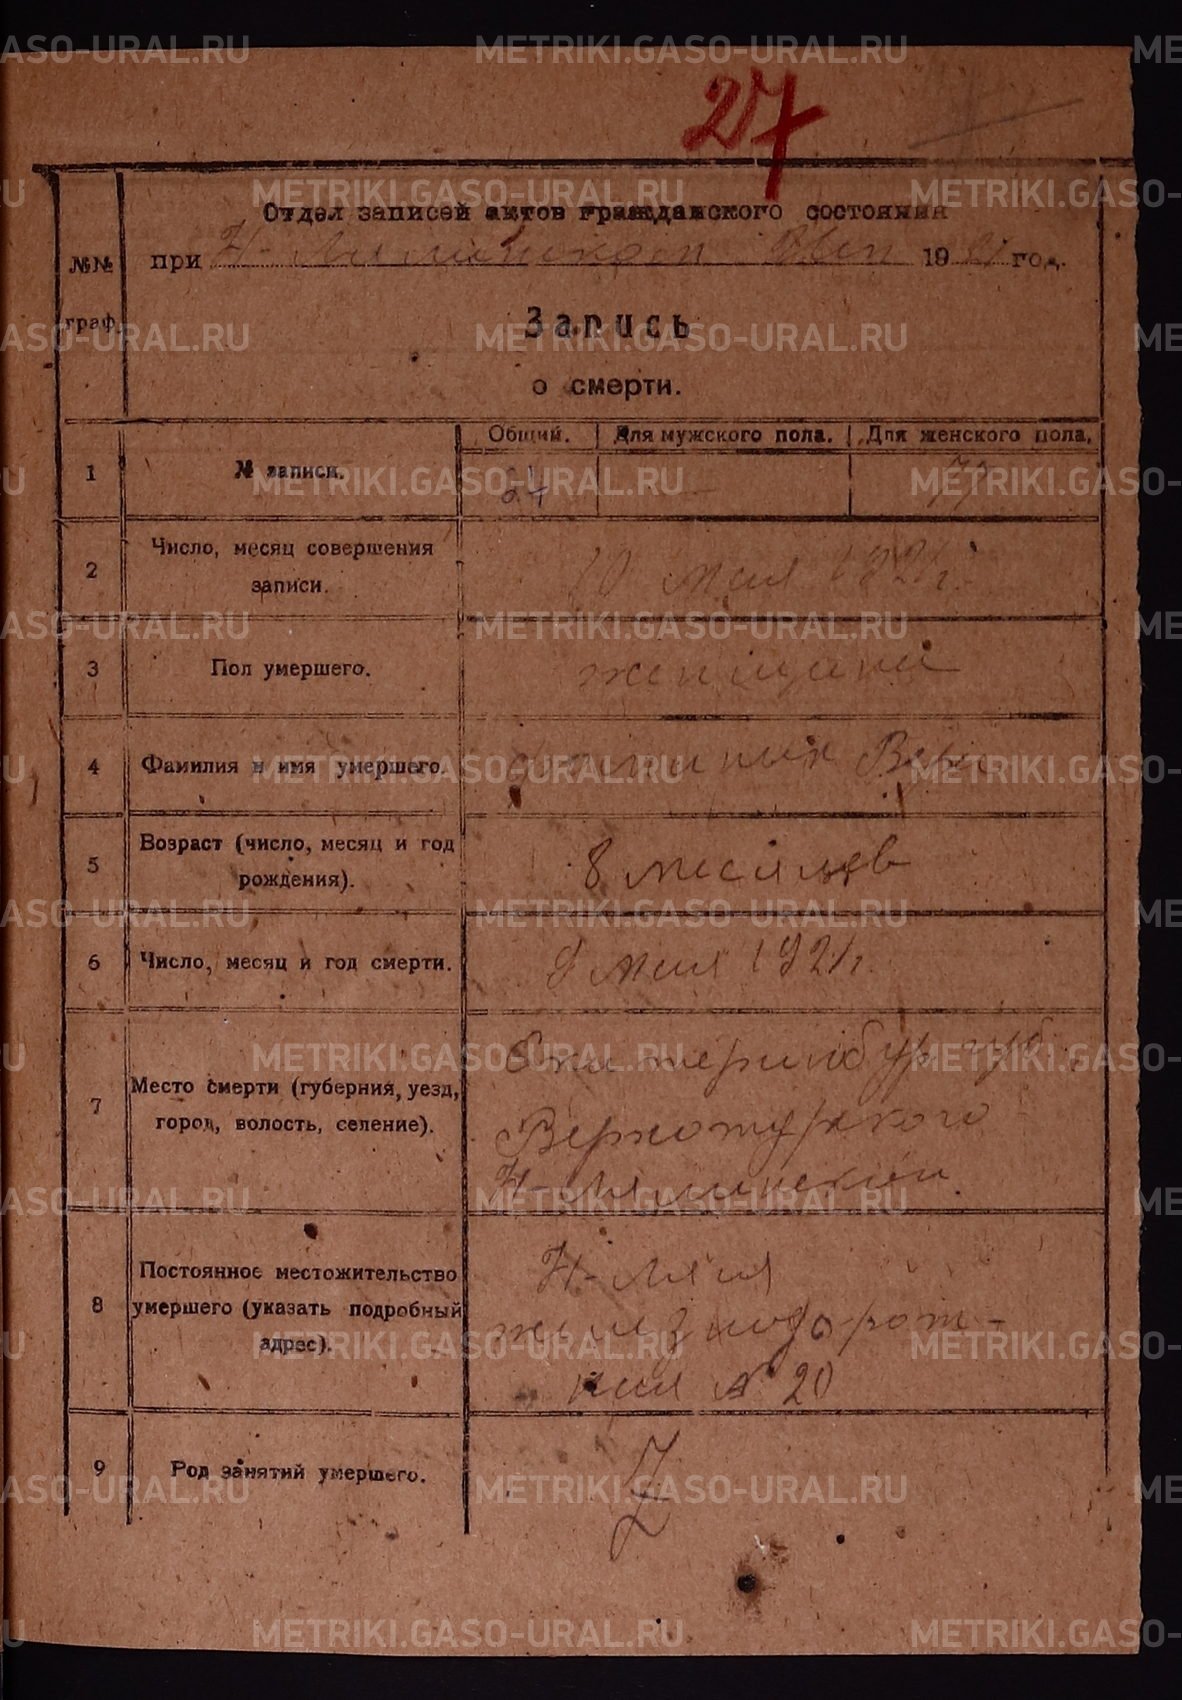 27
Отдел записей актов гражданского состояния
при Н-Лялинском 1921 год.
№№ граф.
Запись
о смерти.
Общий. Для мужского пола. Для женского пола.
1 № записи. 27 —
2 Число, месяц совершения
записи.
10 мая 1921 г.
3 Пол умершего. женщина
4 Фамилия и имя умершего. Вера
5 Возраст (число, месяц и год
рождения).
8 месяцев
6 Число, месяц и год смерти. 9 мая 1921 г.
7 Место смерти (губерния, уезд,
город, волость, селение).
Екатеринбур губ.
Верхотурского
Н-Лялинский
8 Постоянное местожительство
умершего (указать подробный
адрес).
Н-Ляля
железнодорож-
ная № 20
9 Род занятий умершего.
METRIKI.GASO-URAL.RU